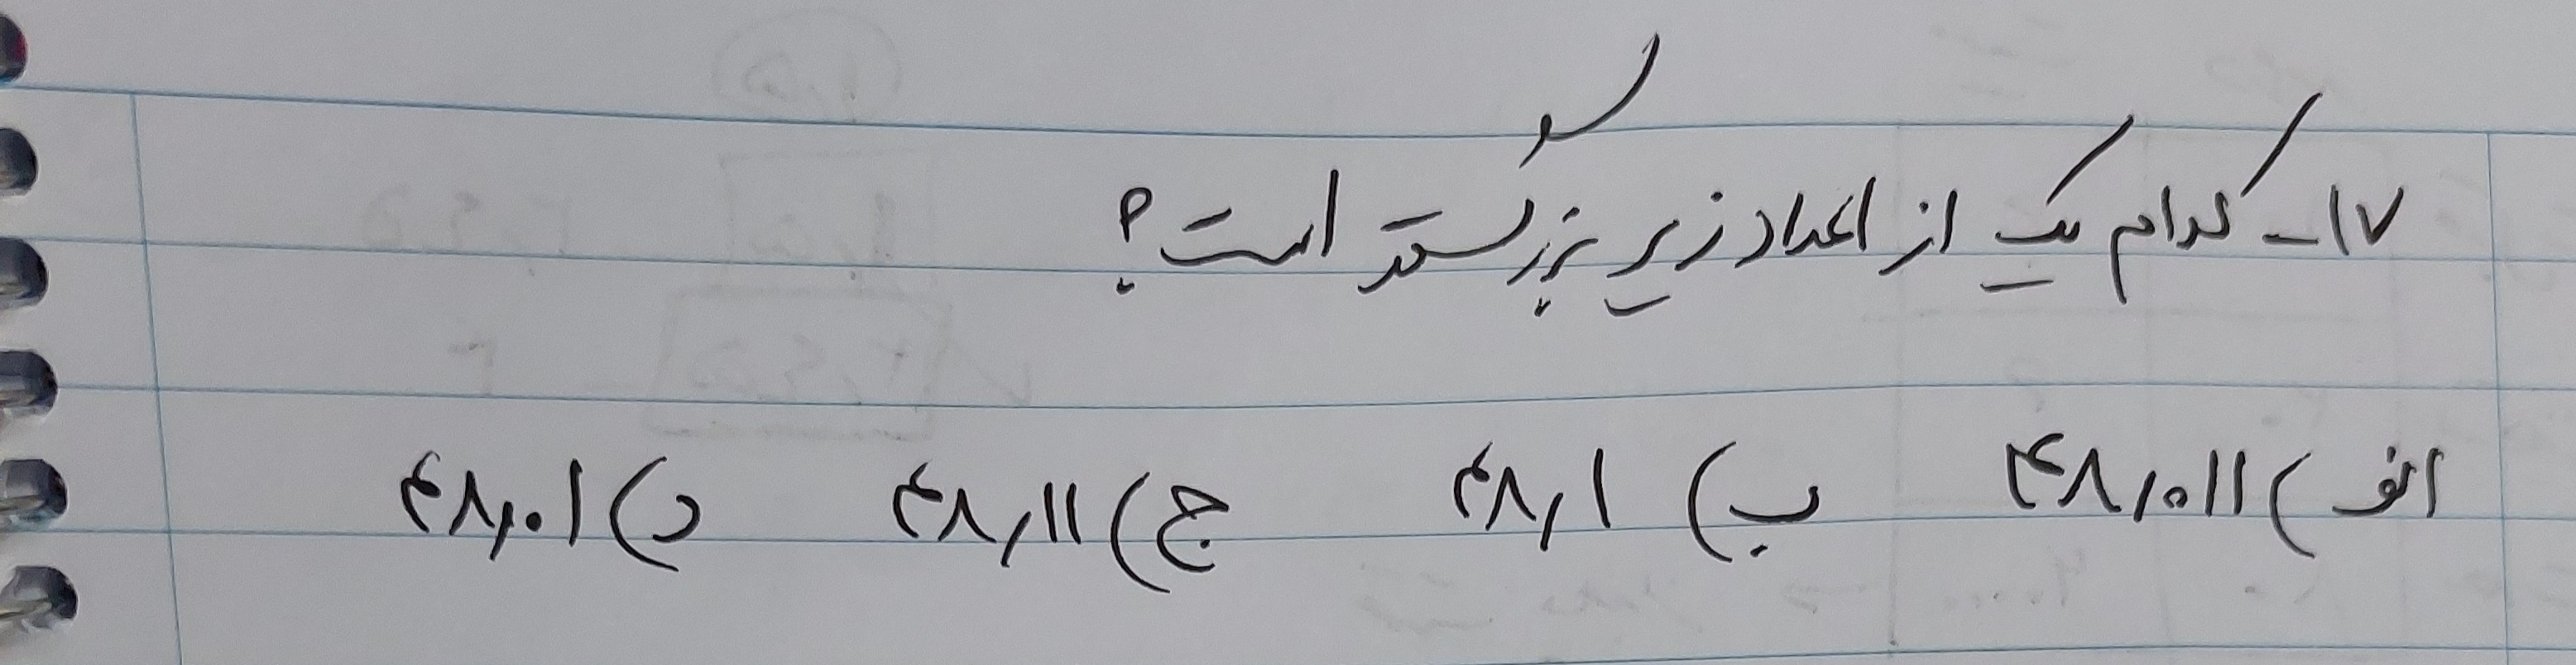 ۱۷- کدام یک از اعداد زیر بزرگتر است؟
الف) ۴۸٫۰۱۱ ب) ۴۸٫۱ ج) ۴۸٫۱۱ د) ۴۸٫۰۱